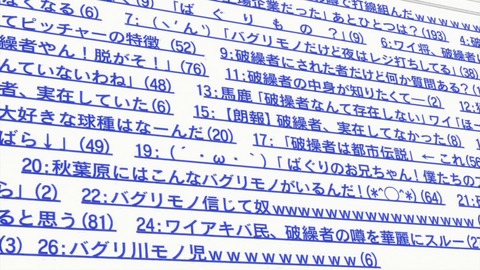 なくなる(6)
(9)「
場企業だった」あとひとつは?(193)
で打線組んだwwwww
7:(ヽ´ん`)「ばぐりもの?」(9)
6:ワイ将、破綻者
てピッチャーの特徴 (52)
9:破繰者にされた者だけど何か質問ある?(
「バグリモノだけど夜はレジ打ちしてる」(38)
繰者やん!脱がそ!」(76)
11:破繰者の中身が知りたくて—(2)
んていないわね」(48)
13:馬鹿「破操者なんて存在しない」ワイ「ほー
者、実在していた(6)
15:【朗報】破繰者、実在してなかった(8)
大好きな球種はなーんだ(20)
17:「破操者は都市伝説」←これ(56
ばら↓」(49)
19:(´・ω・`)「ばぐりのお兄ちゃん!僕たちのフ
20:秋葉原にはこんなバグリモノがいるんだ!(*^◯^*)(64)
21:
ら」(2)
22:バグリモノ信じて奴wwwwwwwwwwwwwwww
ると思う(81)
24:ワイアキバ民、破繰者の噂を華麗にスルー(27
(3)
26:バグリ川モノ児wwwwwwwww(6)